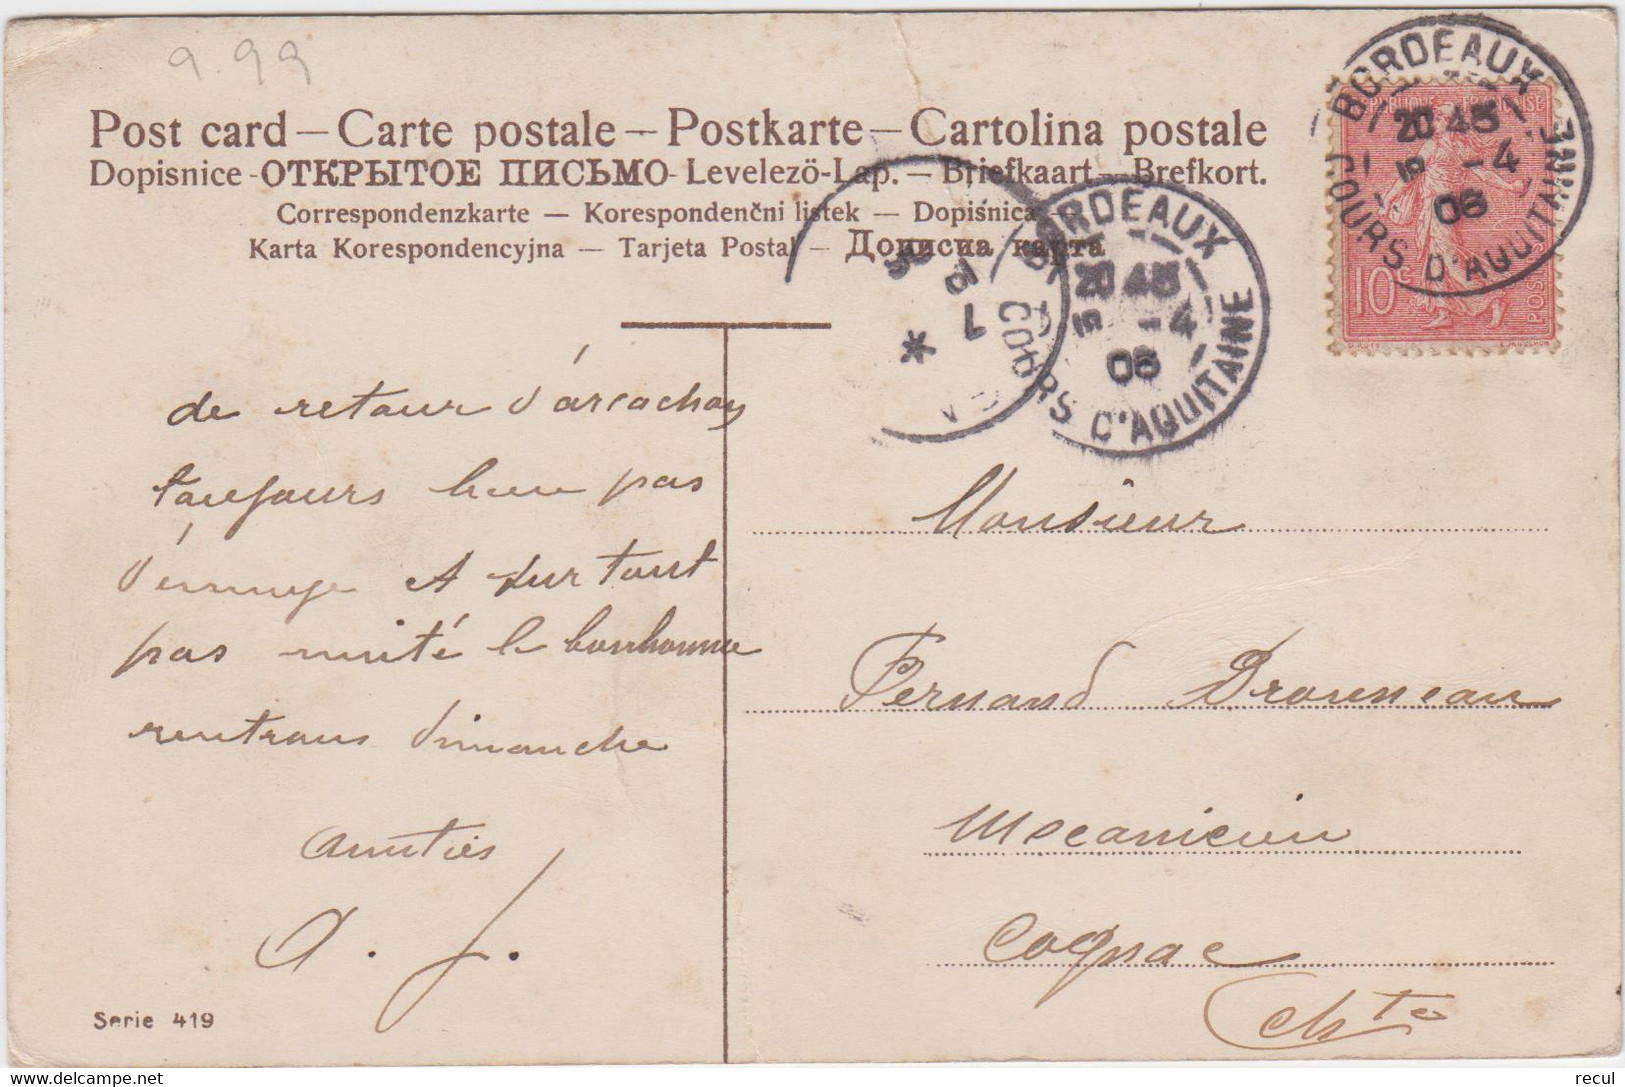 9.99
Post card — Carte postale — Postkarte — Cartolina postale
Dopisnice - ОТКРЫТОЕ ПИСЬМО - Levelező-Lap. — Briefkaart — Brefkort.
Correspondenzkarte — Korespondenčni listek — Dopiśnica —
Karta Korespondencyjna — Tarjeta Postal — Дописна карта
BORDEAUX
20 45
5 -4
06
COURS D'AQUITAINE
BORDEAUX
20 45
5 -4
06
COURS D'AQUITAINE
10c
de retour d'arcachon
toujours pas
d'ennuye et surtout
pas imité le bonhomme
rentrons dimanche
amitiés
A. J.
Monsieur
Fernand Drouneau
Mecanicien
Cognac
Chte
Serie 419
delcampe.net
recul